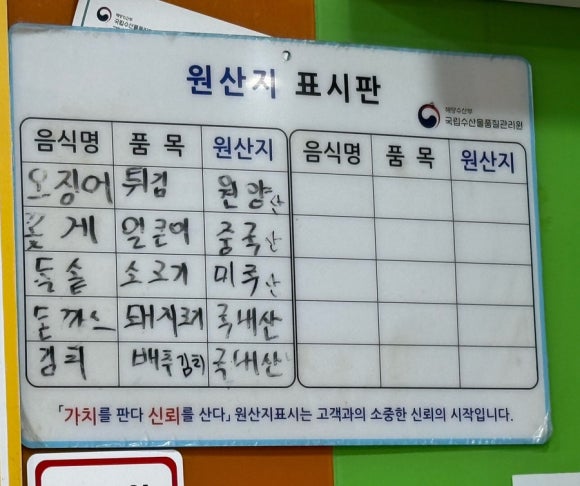 해양수산부
원산지 표시판
해양수산부
국립수산물품질관리원
음식명 품 목 원산지 음식명 품 목 원산지
오징어 튀김 원양산
꽃게 얼큰이 중국산
돌솥 소고기 미국산
돈까스 돼지고기 국내산
김치 배추김치 국내산
「가치를 판다 신뢰를 산다」 원산지표시는 고객과의 소중한 신뢰의 시작입니다.